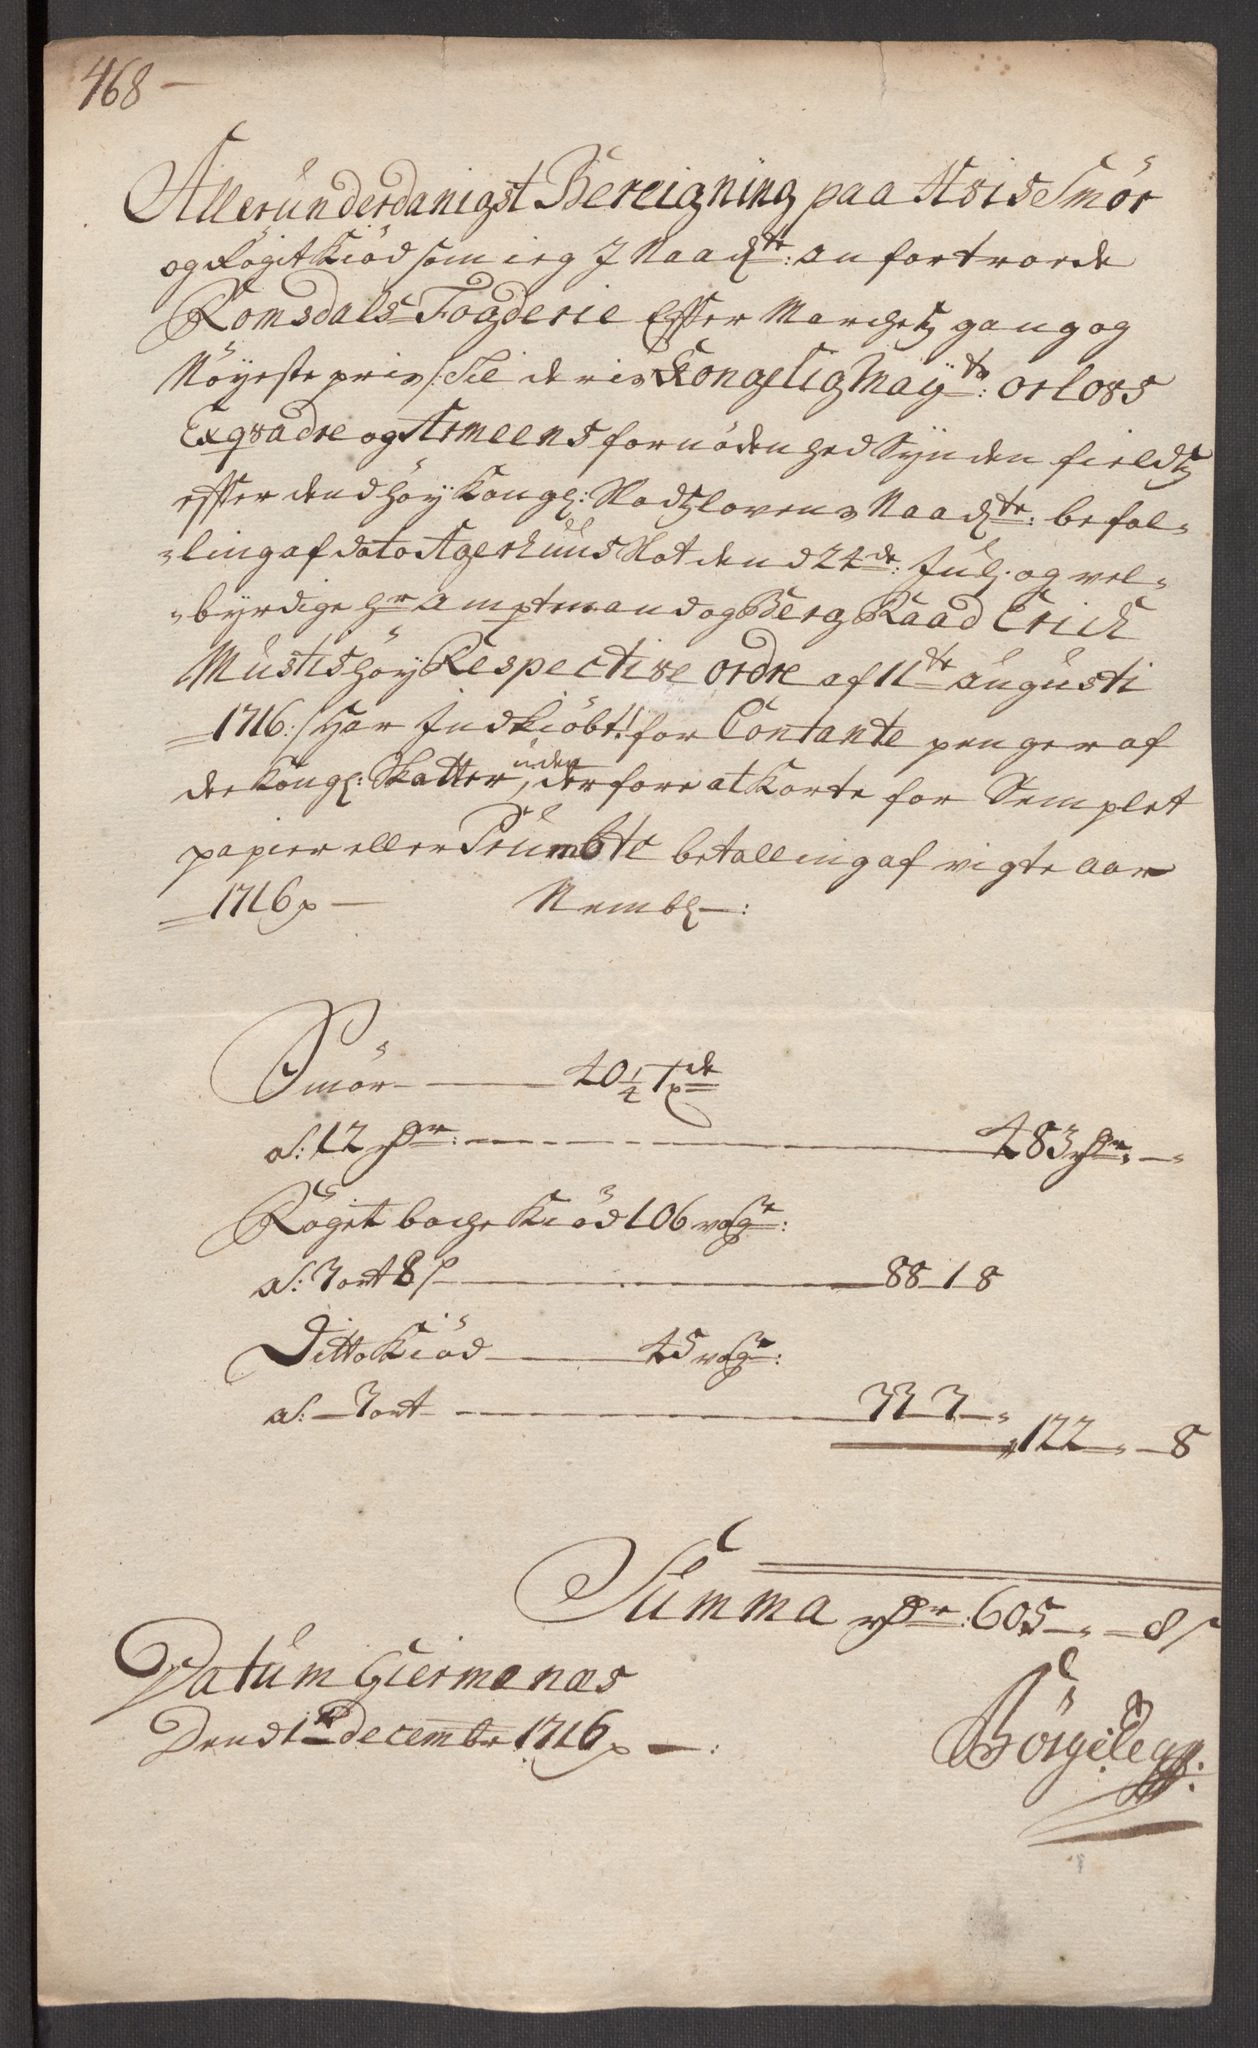 468
Alleründerdanigst Bereigning paa Hvis Smör
og Röget Kiöd som ieg J Naad: anfortroede
Romsdals Fogderie Effter Marchetz gang og
Nöyeste priis /: Til deris Kongelig May:ts orlogs
Exqvadre og Armeens fornödenhed Synden fieldtz
effter dend höy Kongl: Slodtzlovens Naad: befal-
-ling af dato Agershuus Slot dend 24de: Julj. og vel-
-byrdige Hr Amptmand og Berg Raad Erich
Mustis höy Respective ordre af 11te Augusti
1716 :/ Har Jndkiöbt! for Contante penger af
de Kongl: Skatter, uden derfore at Korte for Stemplet
papier eller Prümbte betalling af rigte aar
1716 Nembl:
Smör 40 1/4 Tde
a: 12 rdr: 483 rdr: -
Röget boge Kiöd 106 voger:
a: 3 ort 8 s 88 1 8
Ditto Kiöd 45 voger:
a: 3 ort 33 3 -
122 - 8
Summa rdr: 605 - 8 s
Datum Giermenæs
Dend 1te Decembr 1716